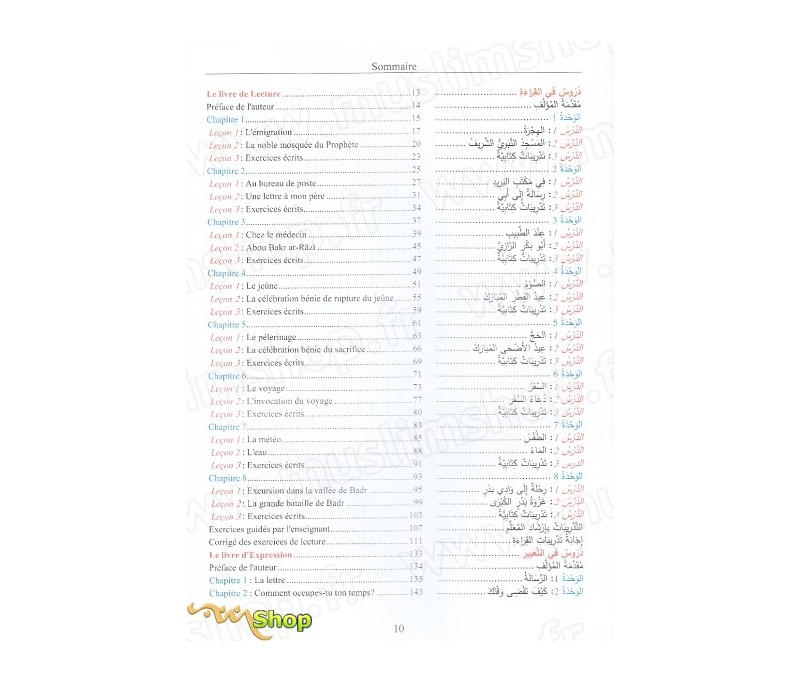 Sommaire
Le livre de Lecture 13 دُرُوسٌ فِي القِرَاءَةِ
Préface de l'auteur 14 مُقَدِّمَةُ المُؤَلِّفِ
Chapitre 1 15 الوَحْدَةُ 1
Leçon 1 : L'émigration 17 الدَّرْسُ 1: الهِجْرَةُ
Leçon 2 : La noble mosquée du Prophète 20 الدَّرْسُ 2: المَسْجِدُ النَّبَوِيُّ الشَّرِيفُ
Leçon 3 : Exercices écrits 23 الدَّرْسُ 3: تَدْرِيبَاتٌ كِتَابِيَّةٌ
Chapitre 2 25 الوَحْدَةُ 2
Leçon 1 : Au bureau de poste 27 الدَّرْسُ 1: فِي مَكْتَبِ البَرِيدِ
Leçon 2 : Une lettre à mon père 31 الدَّرْسُ 2: رِسَالَةٌ إِلَى أَبِي
Leçon 3 : Exercices écrits 34 الدَّرْسُ 3: تَدْرِيبَاتٌ كِتَابِيَّةٌ
Chapitre 3 37 الوَحْدَةُ 3
Leçon 1 : Chez le médecin 39 الدَّرْسُ 1: عِنْدَ الطَّبِيبِ
Leçon 2 : Abou Bakr ar-Râzî 45 الدَّرْسُ 2: أَبُو بَكْرٍ الرَّازِيُّ
Leçon 3 : Exercices écrits 47 الدَّرْسُ 3: تَدْرِيبَاتٌ كِتَابِيَّةٌ
Chapitre 4 49 الوَحْدَةُ 4
Leçon 1 : Le jeûne 51 الدَّرْسُ 1: الصَّوْمُ
Leçon 2 : La célébration bénie de rupture du jeûne 55 الدَّرْسُ 2: عِيدُ الفِطْرِ المُبَارَكُ
Leçon 3 : Exercices écrits 59 الدَّرْسُ 3: تَدْرِيبَاتٌ كِتَابِيَّةٌ
Chapitre 5 61 الوَحْدَةُ 5
Leçon 1 : Le pèlerinage 63 الدَّرْسُ 1: الحَجُّ
Leçon 2 : La célébration bénie du sacrifice 66 الدَّرْسُ 2: عِيدُ الأَضْحَى المُبَارَكُ
Leçon 3 : Exercices écrits 69 الدَّرْسُ 3: تَدْرِيبَاتٌ كِتَابِيَّةٌ
Chapitre 6 71 الوَحْدَةُ 6
Leçon 1 : Le voyage 73 الدَّرْسُ 1: السَّفَرُ
Leçon 2 : L'invocation du voyage 77 الدَّرْسُ 2: دُعَاءُ السَّفَرِ
Leçon 3 : Exercices écrits 80 الدَّرْسُ 3: تَدْرِيبَاتٌ كِتَابِيَّةٌ
Chapitre 7 83 الوَحْدَةُ 7
Leçon 1 : La météo 85 الدَّرْسُ 1: الطَّقْسُ
Leçon 2 : L'eau 88 الدَّرْسُ 2: المَاءُ
Leçon 3 : Exercices écrits 91 الدرس 3: تَدْرِيبَاتٌ كِتَابِيَّةٌ
Chapitre 8 93 الوَحْدَةُ 8
Leçon 1 : Excursion dans la vallée de Badr 95 الدَّرْسُ 1: رِحْلَةٌ إِلَى وَادِي بَدْرٍ
Leçon 2 : La grande bataille de Badr 99 الدَّرْسُ 2: غَزْوَةُ بَدْرٍ الكُبْرَى
Leçon 3 : Exercices écrits 103 الدَّرْسُ 3: تَدْرِيبَاتٌ كِتَابِيَّةٌ
Exercices guidés par l'enseignant 107 التَّدْرِيبَاتُ بِإِرْشَادِ المُعَلِّمِ
Corrigé des exercices de lecture 111 إِجَابَةُ تَدْرِيبَاتِ القِرَاءَةِ
Le livre d'Expression 133 دُرُوسٌ فِي التَّعْبِيرِ
Préface de l'auteur 134 مُقَدِّمَةُ المُؤَلِّفِ
Chapitre 1 : La lettre 135 الوَحْدَةُ 1: الرِّسَالَةُ
Chapitre 2 : Comment occupes-tu ton temps? 143 الوَحْدَةُ 2: كَيْفَ تَقْضِي وَقْتَكَ
Shop
10